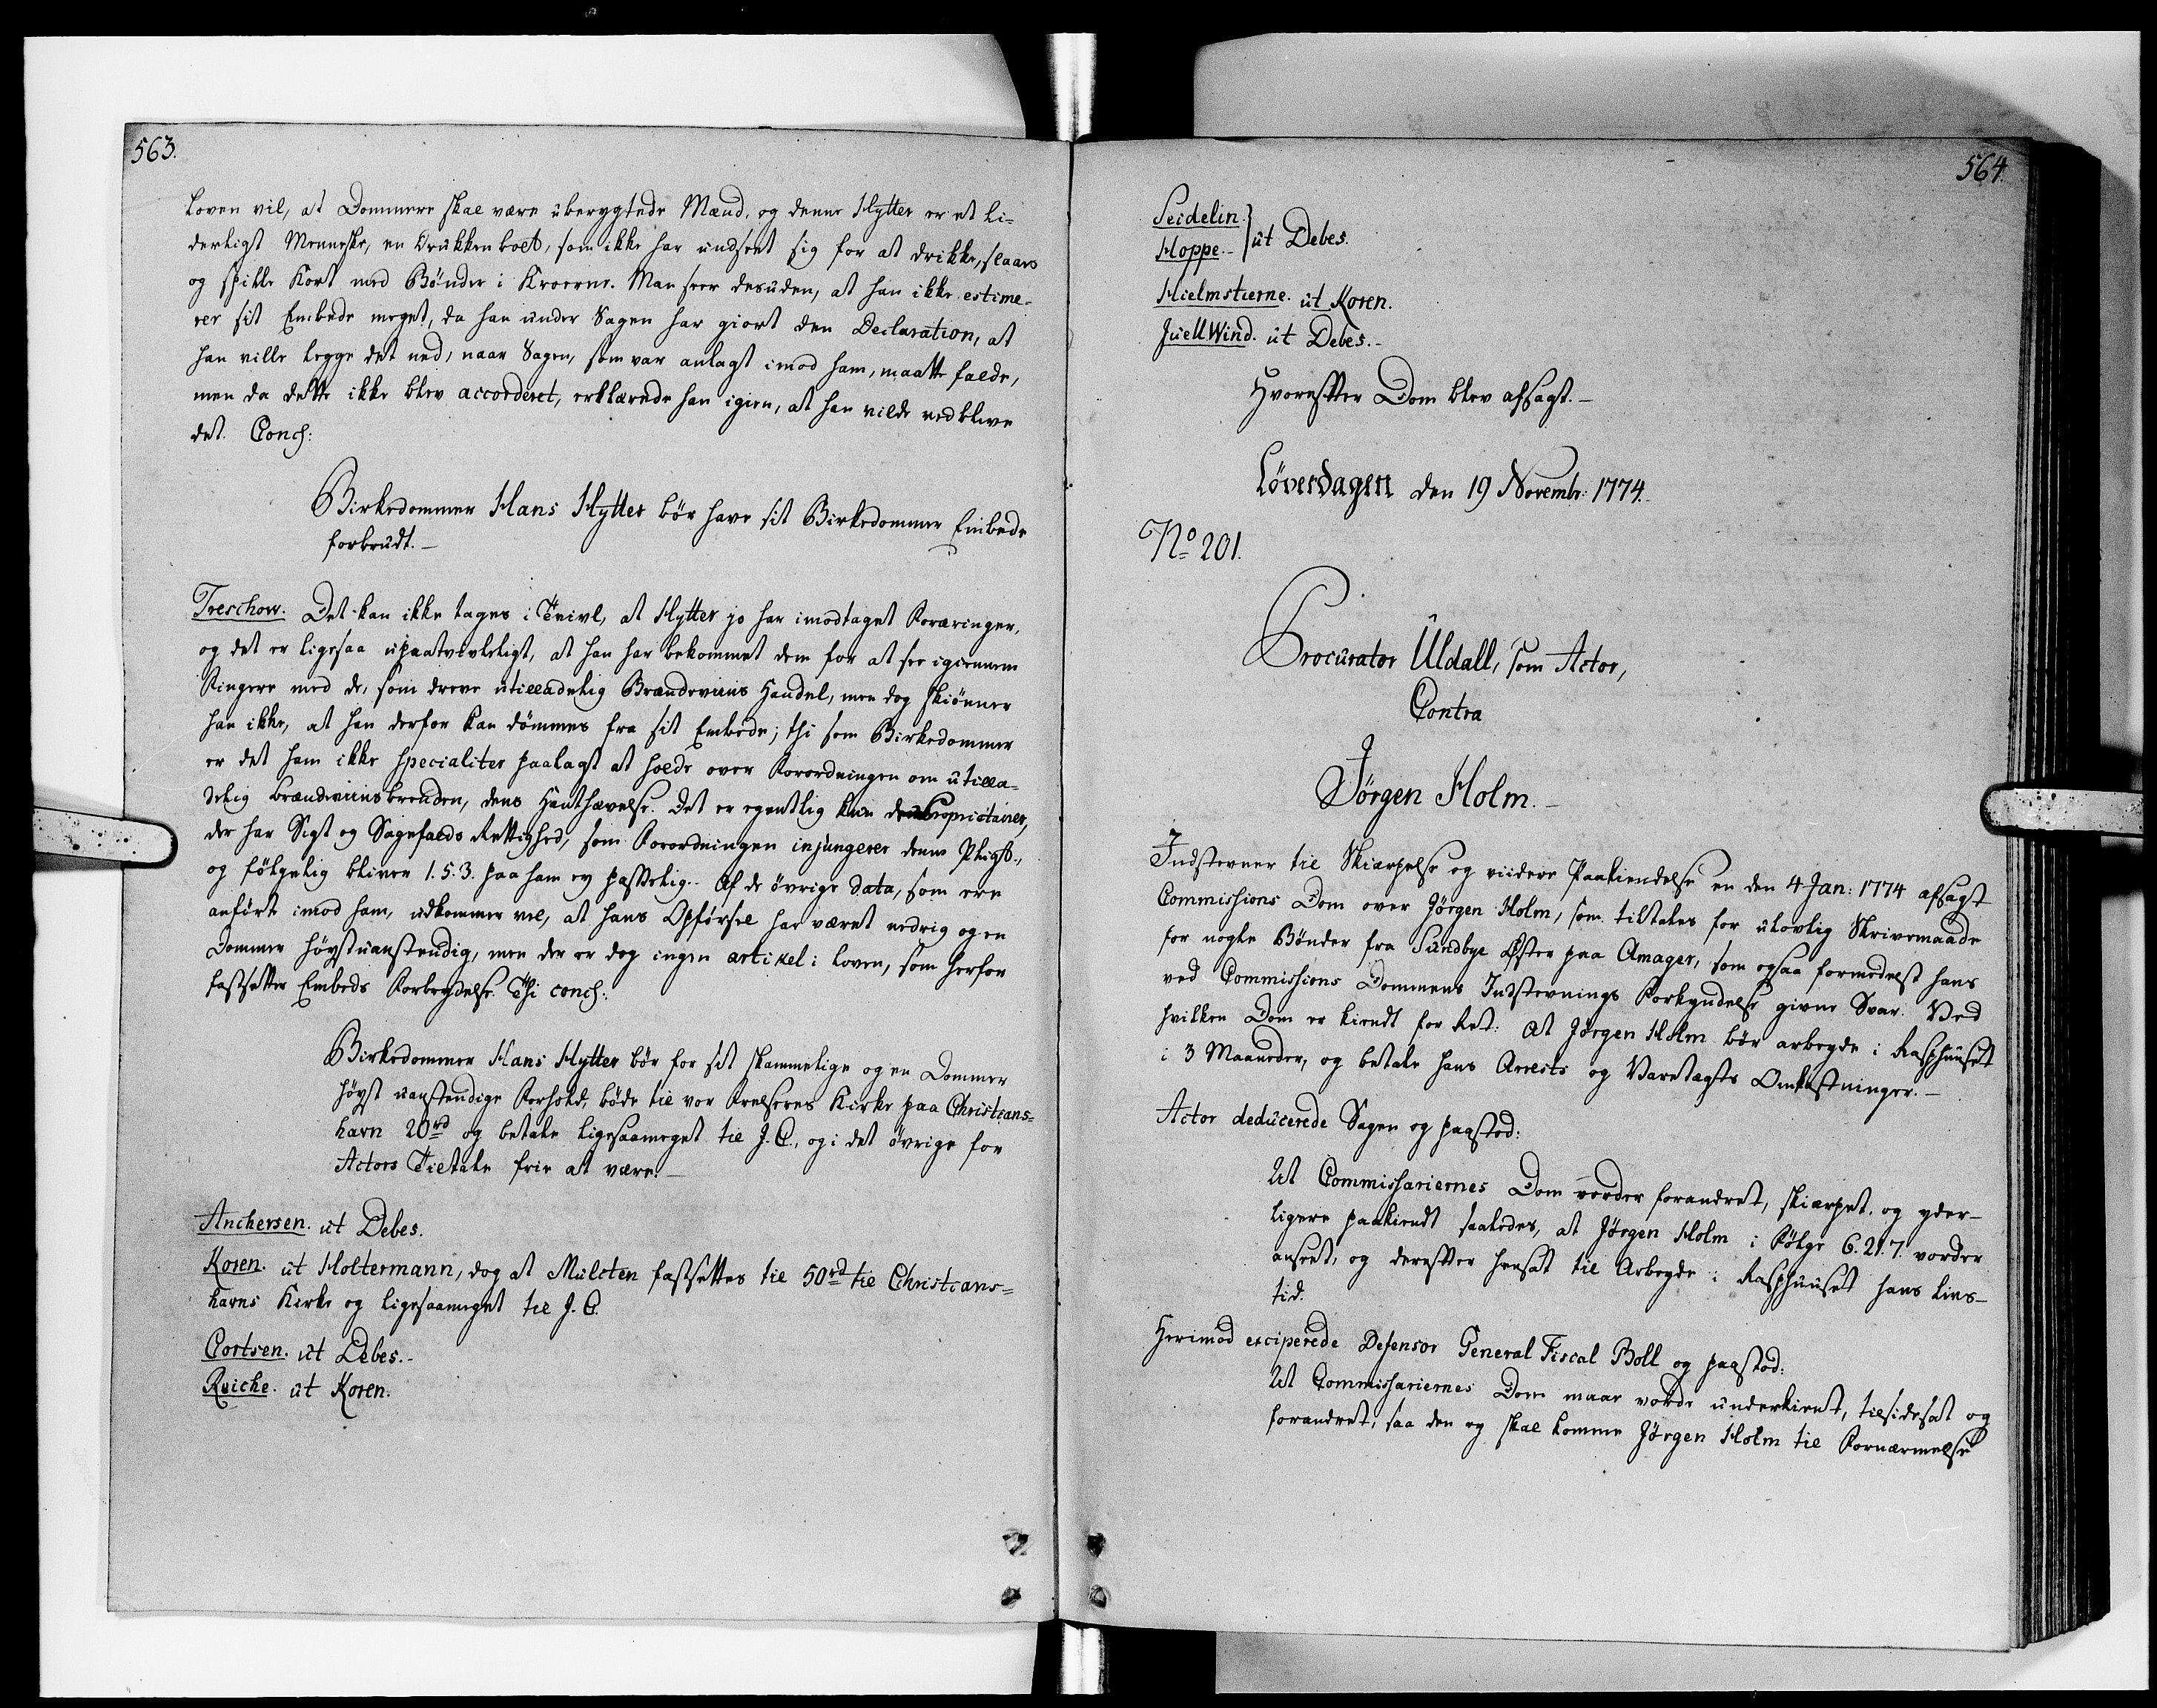 563.
Loven vil, at Dommere skal være uberygtede Mænd, og denne Hytter er et li-
derligt Menneske, en Drukkenbolt, som ikke har undseet sig for at drikke, slaaes
og spille Kort med Bönder i Kroerne. Man seer desuden, at han ikke estime-
rer sit Embede meget, da han under Sagen har giort den Declaration, at
han ville legge det ned, naar Sagen, som var anlagt imod ham, maatte falde,
men da dette ikke blev accorderet, erklærede han igien, at han vilde vedblive
det. Conch:
Birkedommer Hans Hytter bör have sit Birkedommer Embede
forbrudt.-
Treschow. Det kan ikke tages i Tvivl, at Hytter jo har imodtaget Foræringer,
og det er ligesaa upaatvivleligt, at han har bekommet dem for at see igiennem
Fingere med de, som dreve utilladelig Brændeviins Handel, men dog skiönner
han ikke, at han derfor kan dömmes fra sit Embede; thi som Birkedommer
er det ham ikke specialiter paalagt at holde over Forordningen om utilla-
delig brændeviinsbrenden, dens Handthævelse. Det er egentlig kun Proprietairer,
der har Sigt og Sagefalds Rettighed, som Forordningen injungerer denne Pligt,
og fölgelig bliver 1.5.3. paa ham ey passelig.- Af de övrige data, som ere
anförte imod ham, udkommer vel, at hans Opförsel har været nedrig og en
Dommer höystuanstendig, men der er dog ingen artikel i Loven, som herfor
fastsetter Embeds Forbrydelse. Thi conch:
Birkedommer Hans Hytter bör for sit skammelige og en Dommer
höyst uanstendige Forhold, böde til vor Frelseres Kirke paa Christians=
havn 20 rd og betale ligesaameget til J. C., og i det övrige for
Actors Tiltale frie at være.-
Anchersen. ut Debes.
Koren. ut Holtermann, dog at Mulcten fastsettes til 50 rd til Christians=
havns Kirke og ligesaameget til J. C.
Cortsen. ut Debes.-
Reiche. ut Koren.
564.
Seidelin.
Hoppe.- } ut Debes.
Hielmstierne. ut Koren.
Juell Wind. ut Debes.-
Hvorefter Dom blev afsagt.-
Löverdagen den 19 Novembr: 1774.
No 201.
Procurator Uldall, som Actor,
Contra
Jörgen Holm.-
Indstevner til Skiærpelse og viidere Paakiendelse en den 4 Jan: 1774 afsagt
Commissions Dom over Jörgen Holm, som tiltales for ulovlig Skrivemaade
for nogle Bönder fra Sundbye Öster paa Amager, som ogsaa formedelst hans
ved Commissions Dommens Indstevnings Forkyndelse givne Svar. Ved
hvilken Dom er kiendt for Ret: At Jörgen Holm bör arbeyde i Rasphuuset
i 3 Maaneder, og betale hans Arrests og Varetægts Omkostninger.-
Actor deducerede Sagen og paastod:
At Commissariernes Dom vorder forandret, skiærpet, og yder-
ligere paakiendt saaledes, at Jörgen Holm i Fölge 6.21.7. vorder
anseet, og derefter hensat til Arbeyde i Rasphuuset hans Livs-
tid.
Herimod exciperede Defensor General Fiscal Boll og paastod:
At Commissariernes Dom maae vorde underkient, tilsidesat og
forandret, saa den ey skal komme Jörgen Holm til Fornærmelse